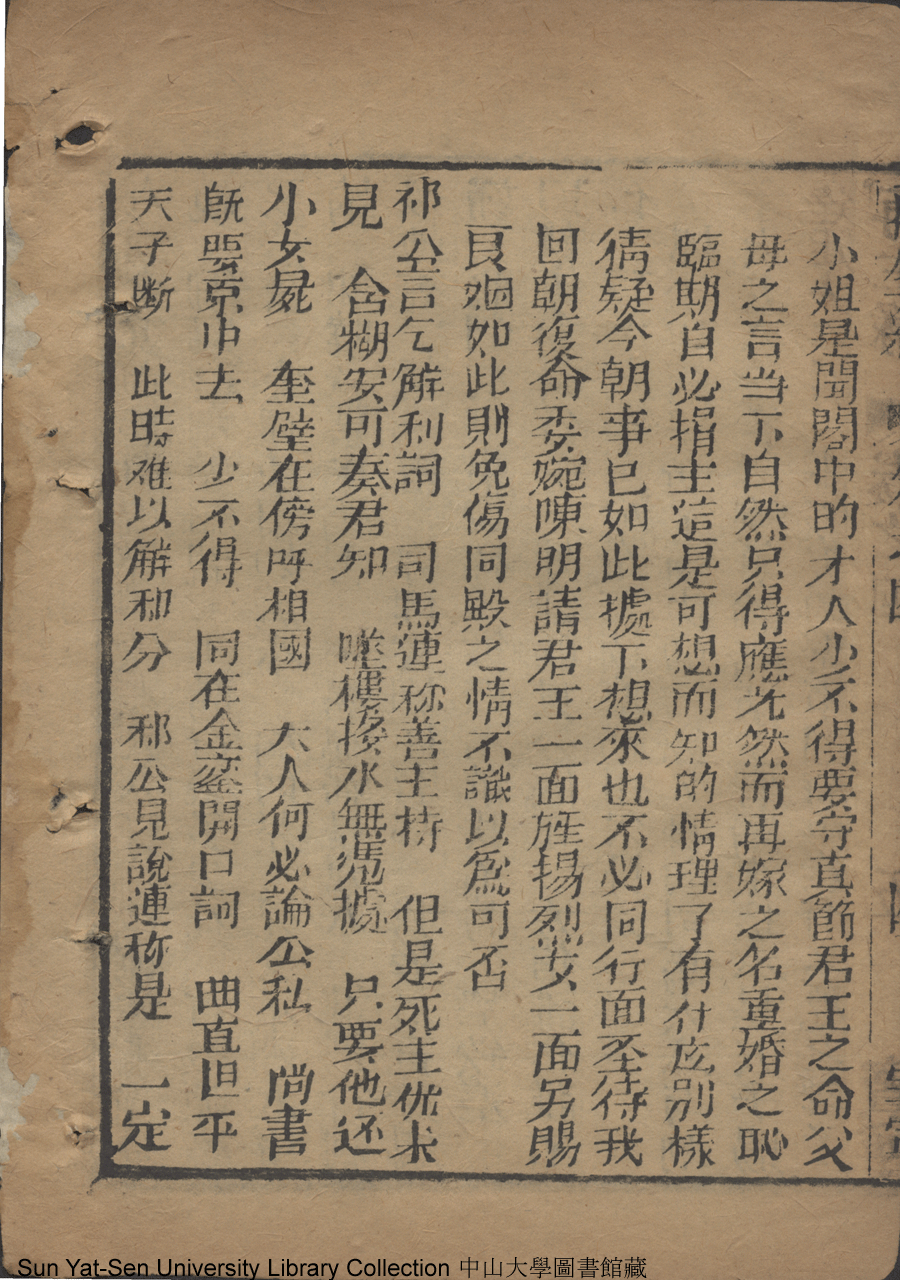 小姐是閨閣中的才人少不得要守真節君王之命父
母之言当下自然只得應允然而再嫁之名重婚之恥
臨期自必捐生這是可想而知的情理了有什庅別樣
猜疑今朝事已如此據下想來也不必同行面圣待我
回朝復命委婉陳明請君王一面旌揚烈女一面另賜
良姻如此則免傷同殿之情不識以為可否
祁公言乞解利詞　司馬連称善主持　但是死生优未
見　含糊安可奏君知　墜樓投水無憑據　只要他还
小女屍　奎璧在傍呼相國　大人何必論公私　尚書
旣要京中去　少不得　同在金鑾開口詞　曲直但平
天子断　此時难以解和分　祁公見說連称是　一定
Sun Yat-Sen University Library Collection 中山大學圖書館藏